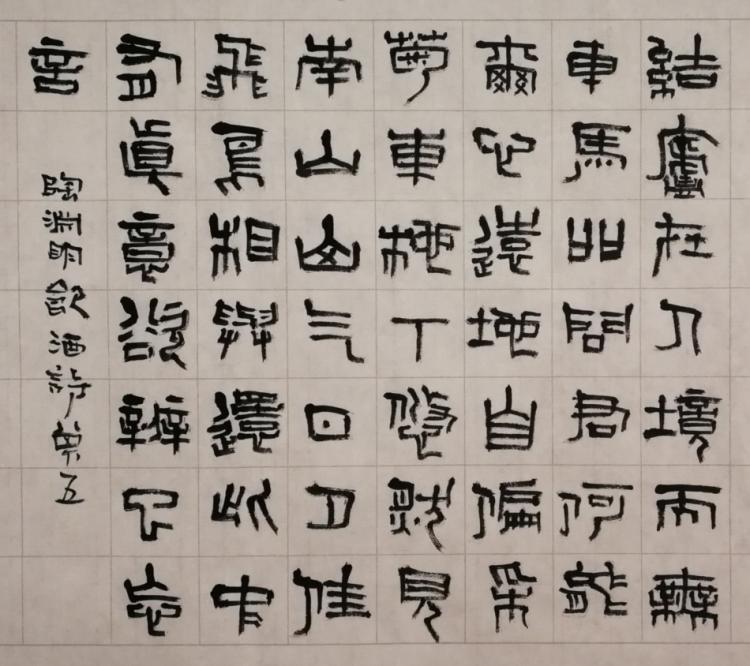 結廬在人境而無
車馬吅問君何能
爾心遠地自偏采
菊東杝下悠然見
南山山气日夕佳
飛鳥相與還此中
有眞意欲辨已忘
言
陶淵明飲酒詩第五